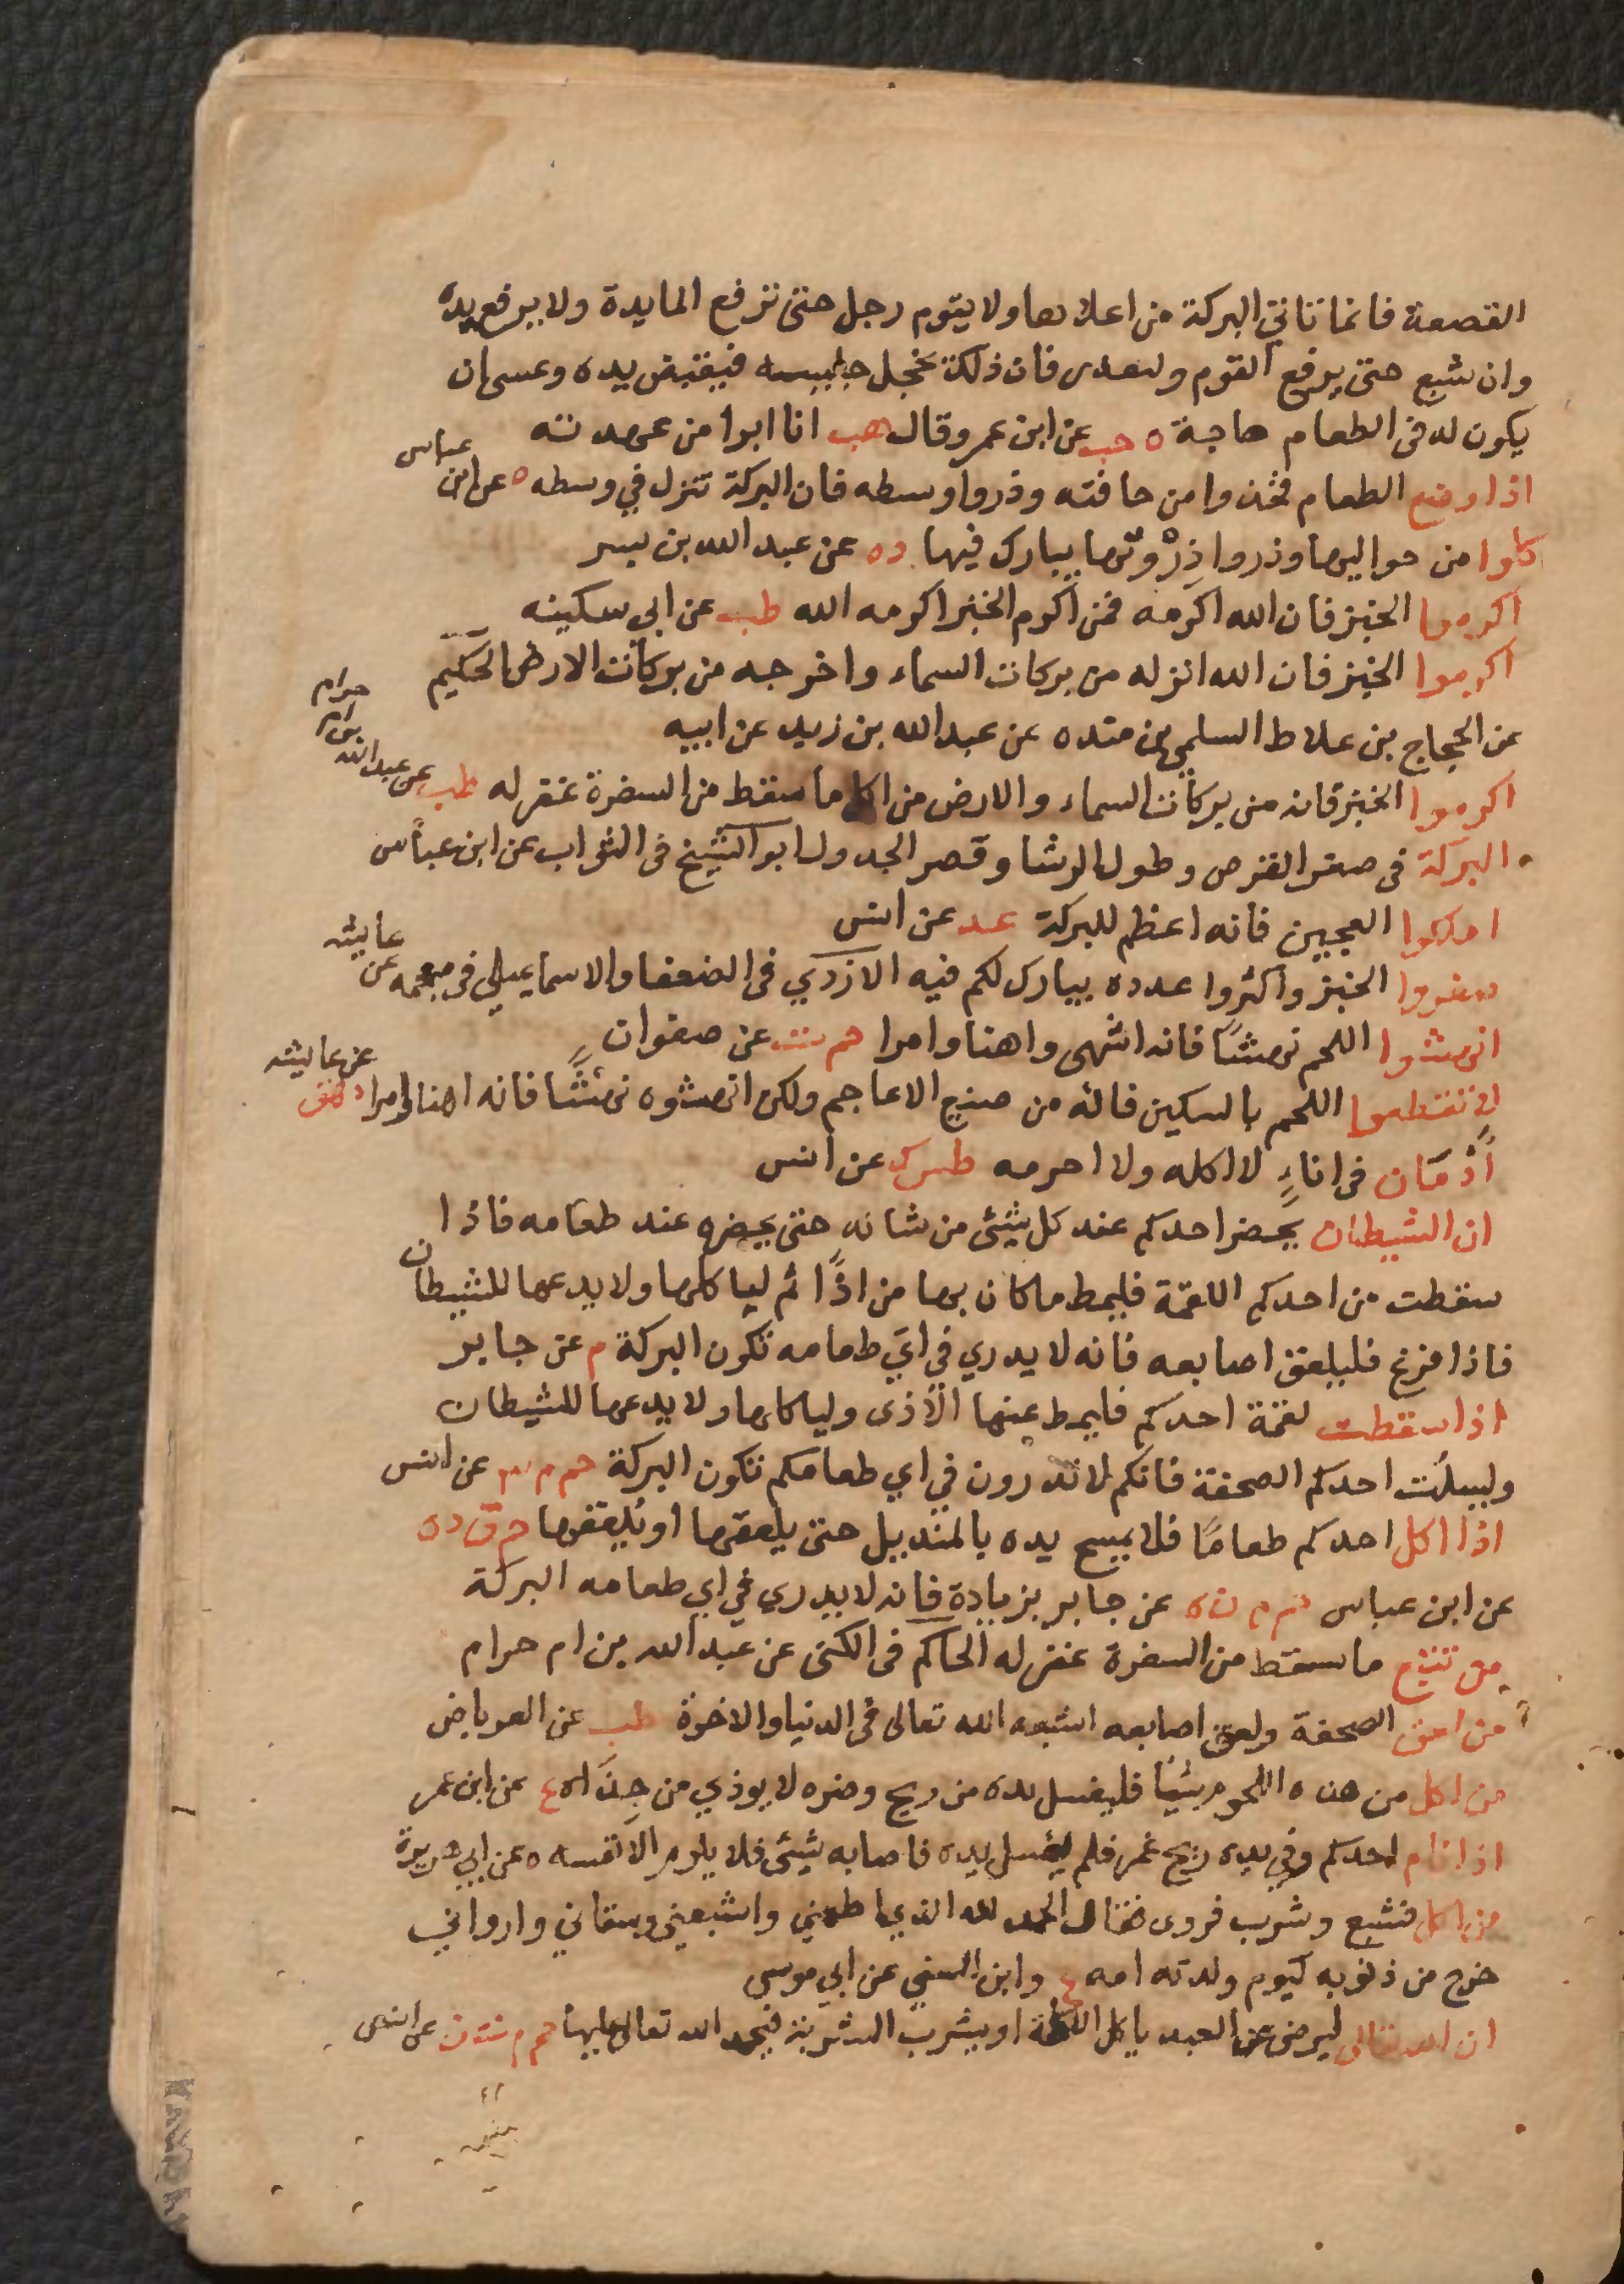 القصعة فانما تاتي البركة من اعلاها ولا يقوم رجل حتى ترفع المايدة ولا يرفع يده
وان شبع حتى يرفع القوم وليعذر فان ذلك يخجل جليسه فيقبض يده وعسى ان
يكون له في الطعام حاجة ه هب عن ابن عمر وقال هب انا ابرا من عهدته
اذا وضع الطعام فخذوا من حافته وذروا وسطه فان البركة تنزل في وسطه ه عن ابن عباس
كلوا من حواليها وذروا ذِرْوتها يبارك فيها د ه عن عبد الله بن بسر
اكرموا الخبز فان الله اكرمه فمن اكرم الخبز اكرمه الله طب عن ابي سكينه
اكرموا الخبز فان الله انزله من بركات السماء واخرجه من بركات الارض الحكيم
عن الحجاج بن علاط السلمي بن منده عن عبد الله بن زيد عن ابيه
اكرموا الخبز فانه من بركات السماء والارض من اكل ما سقط من السفرة غفر له طب عن عبد الله بن ام حرام
البركة في صغر القرص وطول الرشا وقصر الجدول ابو الشيخ في الثواب عن ابن عباس
املكوا العجين فانه اعظم للبركة عد عن انس
صغروا الخبز واكثروا عدده يبارك لكم فيه الازدي في الضعفا والاسماعيلي في معجمه عن عايشه
انهشوا اللحم نهشًا فانه اشهى واهنا وامرا حم ت عن صفوان
لا تقطعوا اللحم بالسكين فانه من صنيع الاعاجم ولكن انهشوه نهشًا فانه اهنا وامرا د هق عن عايشه
أُدْمَان في اناءٍ لا اكله ولا احرمه طس ك عن انس
ان الشيطان يحضر احدكم عند كل شيئ من شانه حتى يحضره عند طعامه فاذا
سقطت من احدكم اللقمة فليمط ما كان بها من اذًا ثم لياكلها ولا يدعها للشيطان
فاذا فرغ فليلعق اصابعه فانه لا يدري في اي طعامه تكون البركة م عن جابر
اذا سقطت لقمة احدكم فليمط عنها الأذى ولياكلها ولا يدعها للشيطان
وليسلُت احدكم الصحفة فانكم لا تدرون في اي طعامكم تكون البركة حم م عن انس
اذا اكل احدكم طعامًا فلا يمسح يده بالمنديل حتى يلعقها او يُلعقها حم ق د ه
عن ابن عباس حم م ن ه عن جابر بزيادة فانه لا يدري في اي طعامه البركة
من تتبع ما سقط من السفرة غفر له الحاكم في الكنى عن عبد الله بن ام حرام
من لعق الصحفة ولعق اصابعه اشبعه الله تعالى في الدنيا والاخرة طب عن العرباض
من اكل من هذه اللحوم شيئا فليغسل يده من ريح وضره لا يوذي من حِذَاه ع عن ابن عمر
اذا نام احدكم وفي يده ريح غمر فلم يغسل يده فاصابه شيئ فلا يلومن الا نفسه ه عن ابي هريرة
من اكل فشبع وشرب فروى فقال الحمد لله الذي اطعمني واشبعني وسقاني وارواني
خرج من ذنوبه كيوم ولدته امه ع وابن السني عن ابي موسى
ان الله تعالى ليرضى عن العبد ياكل الاكلة او يشرب الشربة فيحمد الله تعالى عليها حم م ت ن عن انس